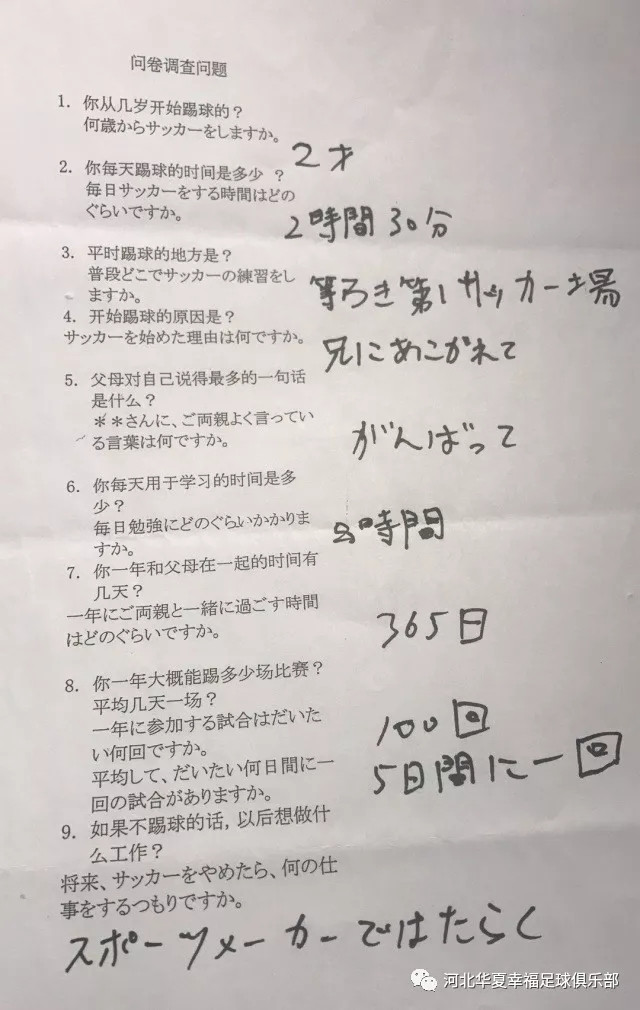 问卷调查问题
1. 你从几岁开始踢球的？
何歳からサッカーをしますか。
2才
2. 你每天踢球的时间是多少 ？
毎日サッカーをする時間はどの
ぐらいですか。
2時間30分
3. 平时踢球的地方是？
普段どこでサッカーの練習をし
ますか。
等ろき第1サッカー場
4. 开始踢球的原因是？
サッカーを始めた理由は何ですか。
兄にあこがれて
5. 父母对自己说得最多的一句话
是什么？
＊＊さんに、ご両親よく言ってい
る言葉は何ですか。
がんばって
6. 你每天用于学习的时间是多
少？
毎日勉強にどのぐらいかかりま
すか。
時間
7. 你一年和父母在一起的时间有
几天？
一年にご両親と一緒に過ごす時間
はどのぐらいですか。
365日
8. 你一年大概能踢多少场比赛？
平均几天一场？
一年に参加する試合はだいた
い何回ですか。
100回
平均して、だいたい何日間に一
回の試合がありますか。
5日間に一回
9. 如果不踢球的话，以后想做什
么工作？
将来、サッカーをやめたら、何の仕
事をするつもりですか。
スポーツメーカーではたらく
河北华夏幸福足球俱乐部